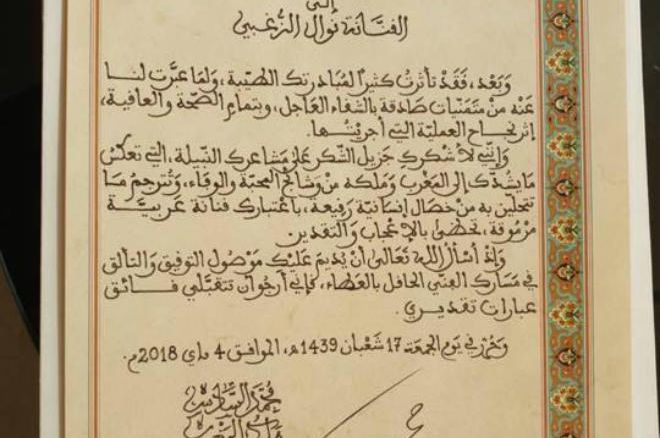 إلى
الفنانة نوال الزغبي
وَبَعْد، فَقَدْ تأثرتُ كثيرًا لمُبَادرتك الطيّبة، وَلمَا عبَّرت لنا
عنْه منْ متمنّيات صَادقة بالشفاء العَاجل، وبتمام الصّحة والعافية،
إثر نجاح العمليّة التي أجريْتُها.
وَإنّي لأشكرك جَزيل الشّكر عَلى مشَاعرك النّبيلة، التي تعكسُ
مَا يشدّك إلى المَغرب وَمَلكه منْ وَشائج المحبّة والوفاء، وَتُترجمُ مَا
تتحلّين به منْ خصَال إنسَانية رَفيعَة، باعْتبارك فنانة عَربيّة
مرْمُوقة، تحْظىٰ بالإعْجاب وَالتقدير.
وَإذ أسْألُ اللّه تَعَالىٰ أنْ يُديمَ عَليْك مَوْصُول التوفيق والتألق
في مسَارك الفنّي الحَافل بالعَطاء، فإنّي أرجُو أن تتقبَّلي فَائق
عبَارات تقديري.
وَحُرّر في يَوم الجمعَة 17 شَعْبان 1439 هـ، الموَافق 4 ماي 2018م.
محمّد السّادسُ
ملك المغرب